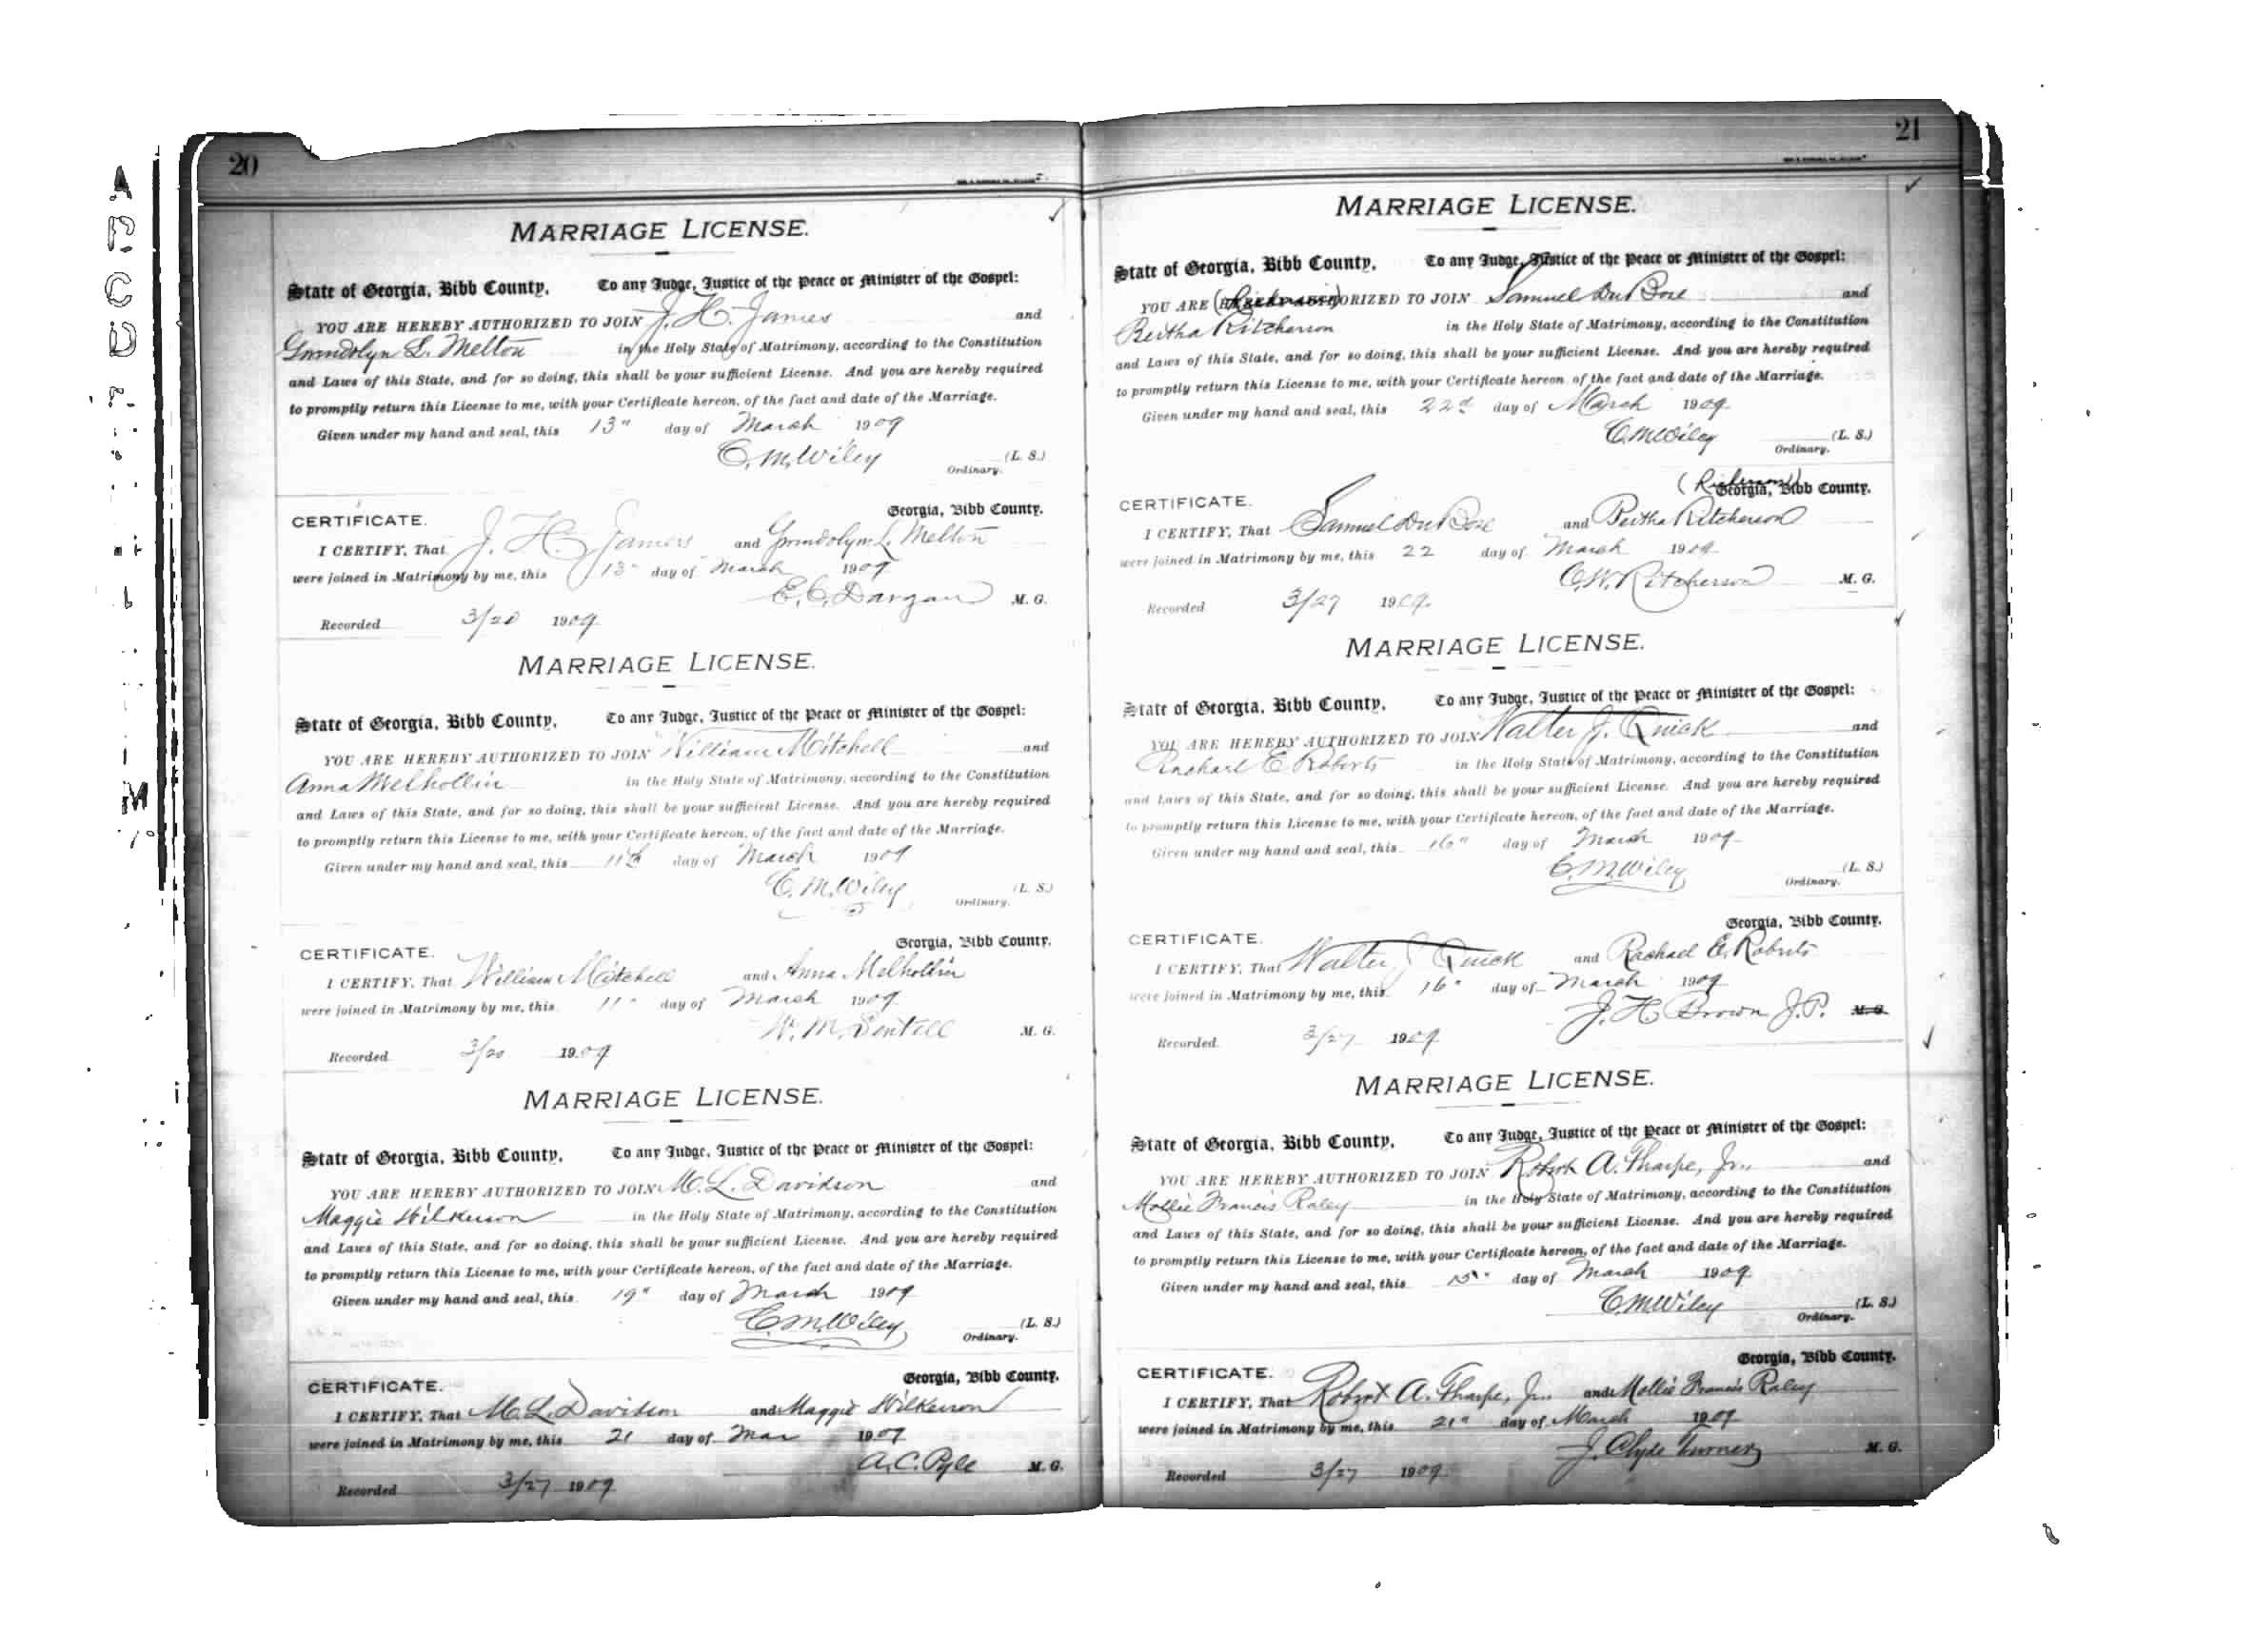 20
MARRIAGE LICENSE.
State of Georgia, Bibb County, To any Judge, Justice of the Peace or Minister of the Gospel:
YOU ARE HEREBY AUTHORIZED TO JOIN J. H. James and
Gwendolyn L. Melton in the Holy State of Matrimony, according to the Constitution
and Laws of this State, and for so doing, this shall be your sufficient License. And you are hereby required
to promptly return this License to me, with your Certificate hereon, of the fact and date of the Marriage.
Given under my hand and seal, this 13" day of March 1909
C. M. Wiley (L. S.)
Ordinary.
CERTIFICATE. Georgia, Bibb County.
I CERTIFY, That J. H. James and Gwendolyn L. Melton
were joined in Matrimony by me, this 13" day of March 1909
E. C. Dargan M. G.
Recorded 3/20 1909
MARRIAGE LICENSE.
State of Georgia, Bibb County, To any Judge, Justice of the Peace or Minister of the Gospel:
YOU ARE HEREBY AUTHORIZED TO JOIN William Mitchell and
Anna Melhollin in the Holy State of Matrimony, according to the Constitution
and Laws of this State, and for so doing, this shall be your sufficient License. And you are hereby required
to promptly return this License to me, with your Certificate hereon, of the fact and date of the Marriage.
Given under my hand and seal, this 11th day of March 1909
C. M. Wiley (L. S.)
Ordinary.
CERTIFICATE. Georgia, Bibb County.
I CERTIFY, That William Mitchell and Anna Melhollin
were joined in Matrimony by me, this 11" day of March 1909
W. M. Sentell M. G.
Recorded 3/20 1909
MARRIAGE LICENSE.
State of Georgia, Bibb County, To any Judge, Justice of the Peace or Minister of the Gospel:
YOU ARE HEREBY AUTHORIZED TO JOIN M. L. Davidson and
Maggie Wilkerson in the Holy State of Matrimony, according to the Constitution
and Laws of this State, and for so doing, this shall be your sufficient License. And you are hereby required
to promptly return this License to me, with your Certificate hereon, of the fact and date of the Marriage.
Given under my hand and seal, this 19" day of March 1909
C. M. Wiley (L. S.)
Ordinary.
CERTIFICATE. Georgia, Bibb County.
I CERTIFY, That M. L. Davidson and Maggie Wilkerson
were joined in Matrimony by me, this 21 day of Mar 1909
A. C. Pyle M. G.
Recorded 3/27 1909
21
MARRIAGE LICENSE.
State of Georgia, Bibb County, To any Judge, Justice of the Peace or Minister of the Gospel:
YOU ARE HEREBY AUTHORIZED TO JOIN Samuel DuBose and
Bertha Ritcherson in the Holy State of Matrimony, according to the Constitution
and Laws of this State, and for so doing, this shall be your sufficient License. And you are hereby required
to promptly return this License to me, with your Certificate hereon, of the fact and date of the Marriage.
Given under my hand and seal, this 22d day of March 1909
C. M. Wiley (L. S.)
Ordinary.
CERTIFICATE. Georgia, Bibb County.
I CERTIFY, That Samuel DuBose and Bertha Ritcherson
were joined in Matrimony by me, this 22 day of March 1909
C. W. Ritcherson M. G.
Recorded 3/27 1909
MARRIAGE LICENSE.
State of Georgia, Bibb County, To any Judge, Justice of the Peace or Minister of the Gospel:
YOU ARE HEREBY AUTHORIZED TO JOIN Walter J. Quick and
Rachael E Roberts in the Holy State of Matrimony, according to the Constitution
and Laws of this State, and for so doing, this shall be your sufficient License. And you are hereby required
to promptly return this License to me, with your Certificate hereon, of the fact and date of the Marriage.
Given under my hand and seal, this 16" day of March 1909
C. M. Wiley (L. S.)
Ordinary.
CERTIFICATE. Georgia, Bibb County.
I CERTIFY, That Walter J Quick and Rachael E. Roberts
were joined in Matrimony by me, this 16" day of March 1909
J. H. Brown J. P. M. G.
Recorded 3/27 1909
MARRIAGE LICENSE.
State of Georgia, Bibb County, To any Judge, Justice of the Peace or Minister of the Gospel:
YOU ARE HEREBY AUTHORIZED TO JOIN Robert A. Tharpe, Jr., and
Mollie Francis Raley in the Holy State of Matrimony, according to the Constitution
and Laws of this State, and for so doing, this shall be your sufficient License. And you are hereby required
to promptly return this License to me, with your Certificate hereon, of the fact and date of the Marriage.
Given under my hand and seal, this 15" day of March 1909
C. M. Wiley (L. S.)
Ordinary.
CERTIFICATE. Georgia, Bibb County.
I CERTIFY, That Robert A. Tharpe, Jr. and Mollie Francis Raley
were joined in Matrimony by me, this 21" day of March 1909
J. Clyde Turner M. G.
Recorded 3/27 1909